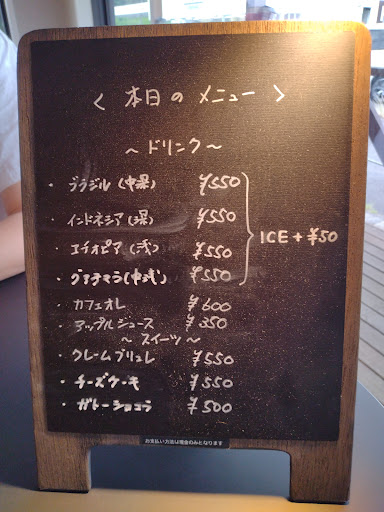 < 本日のメニュー >
～ドリンク～
・ブラジル(中深) ¥550
・インドネシア(深) ¥550
・エチオピア(浅) ¥550
・グアテマラ(中浅) ¥550
ICE+¥50
・カフェオレ ¥600
・アップルジュース ¥350
～スイーツ～
・クレームブリュレ ¥550
・チーズケーキ ¥550
・ガトーショコラ ¥500
お支払い方法は現金のみとなります